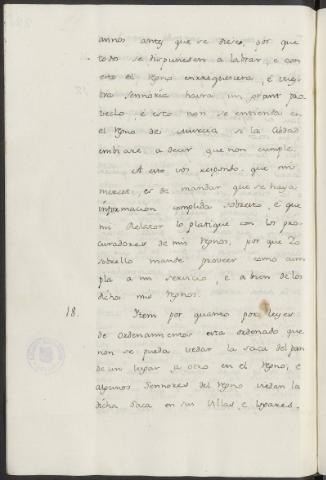 annos antes que se diese, por que
todo se dispusiesen a labrar, e con
esto el Regno enrrequecera, e vues
tra Sennoria havra un grant pro
vecho, e esto non se entienda en
el Regno de Murcia si la Cibdad
embiare a decir que non cumple.
A esto vos respondo, que mi
merced es de mandar que se haya
informacion complida sobrello, é que
mi Relator lo platique con los pro
curadores de mis Regnos, por que Yo
sobrello mande proveer como cum
pla a mi servicio, e a bien de los
dichos mis Regnos.
18. Item por quanto por Leyes
de Ordenamientos esta ordenado que
non se pueda vedar la saca del pan
de un lugar a otro en el Regno, e
algunos Sennores del Regno viedan la
dicha Saca en sus Villas, e Logares,